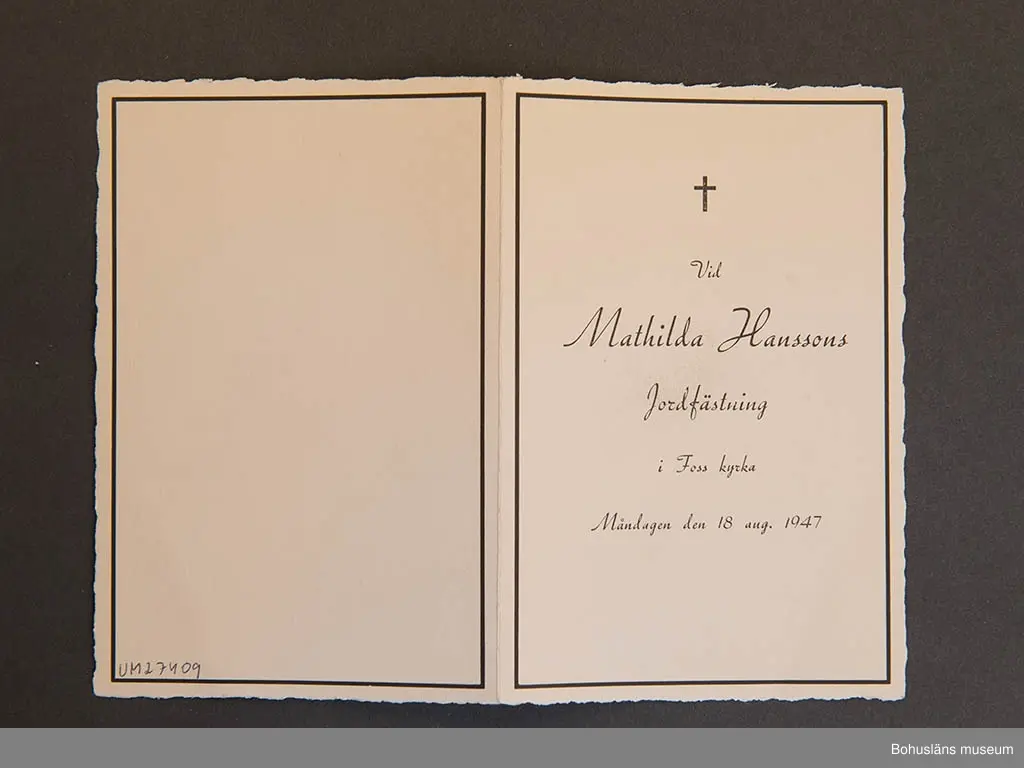 Vid
Mathilda Hanssons
Jordfästning
i Foss kyrka
Måndagen den 18 aug. 1947
UM27409
Bohusläns museum